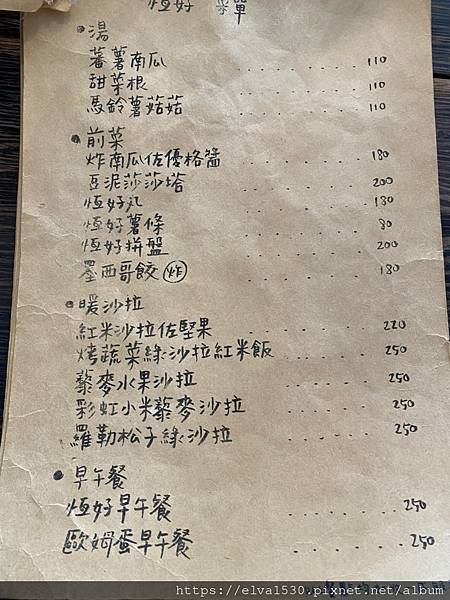 恆好 菜單
●湯
蕃薯南瓜 ........ 110
甜菜根 ........ 110
馬鈴薯菇菇 ........ 110
●前菜
炸南瓜佐優格醬 ........ 180
豆泥莎莎塔 ........ 200
恆好丸 ........ 180
恆好薯條 ........ 80
恆好拼盤 ........ 200
墨西哥餃 (炸) ........ 180
●暖沙拉
紅米沙拉佐堅果 ........ 220
烤蔬菜綠沙拉紅米飯 ........ 250
藜麥水果沙拉 ........ 250
彩虹小米藜麥沙拉 ........ 250
羅勒松子綠沙拉 ........ 250
●早午餐
恆好早午餐 ........ 250
歐姆蛋早午餐 ........ 250
https://elva1530.pixnet.net/album